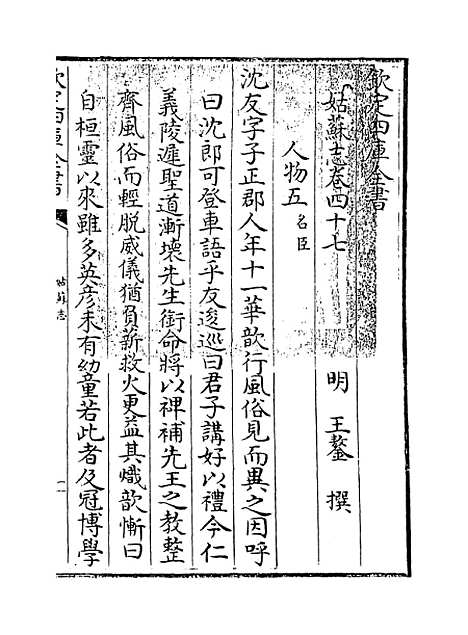 欽定四庫全書
姑蘇志卷四十七
明 王鏊 撰
人物五 名臣
沈友字子正郡人年十一華歆行風俗見而異之因呼
曰沈郎可登車語乎友逡巡曰君子講好以禮今仁
義陵遲聖道漸壞先生銜命將以裨補先王之教整
齊風俗而輕脫威儀猶負薪救火更益其熾歆慚曰
自桓靈以來雖多英彦未有幼童若此者及冠博學
欽定四庫全書
姑蘇志
一